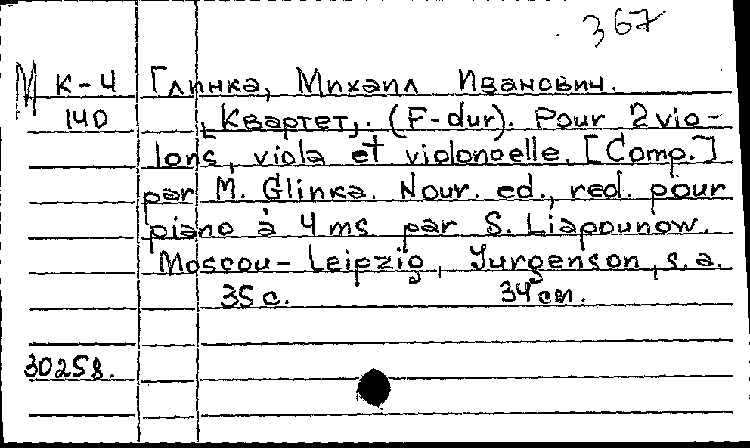 367
М К-4 Глинка, Михаил Иванович.
140 [Квартет]. (F-dur). Pour 2 vio-
lons, viola et violoncelle. [Comp.]
par M. Glinka. Nouv. ed., red. pour
piano à 4 ms par S. Liapounow.
Moscou-Leipzig, Jurgenson, s.a.
35 с. 34 см.
30258.